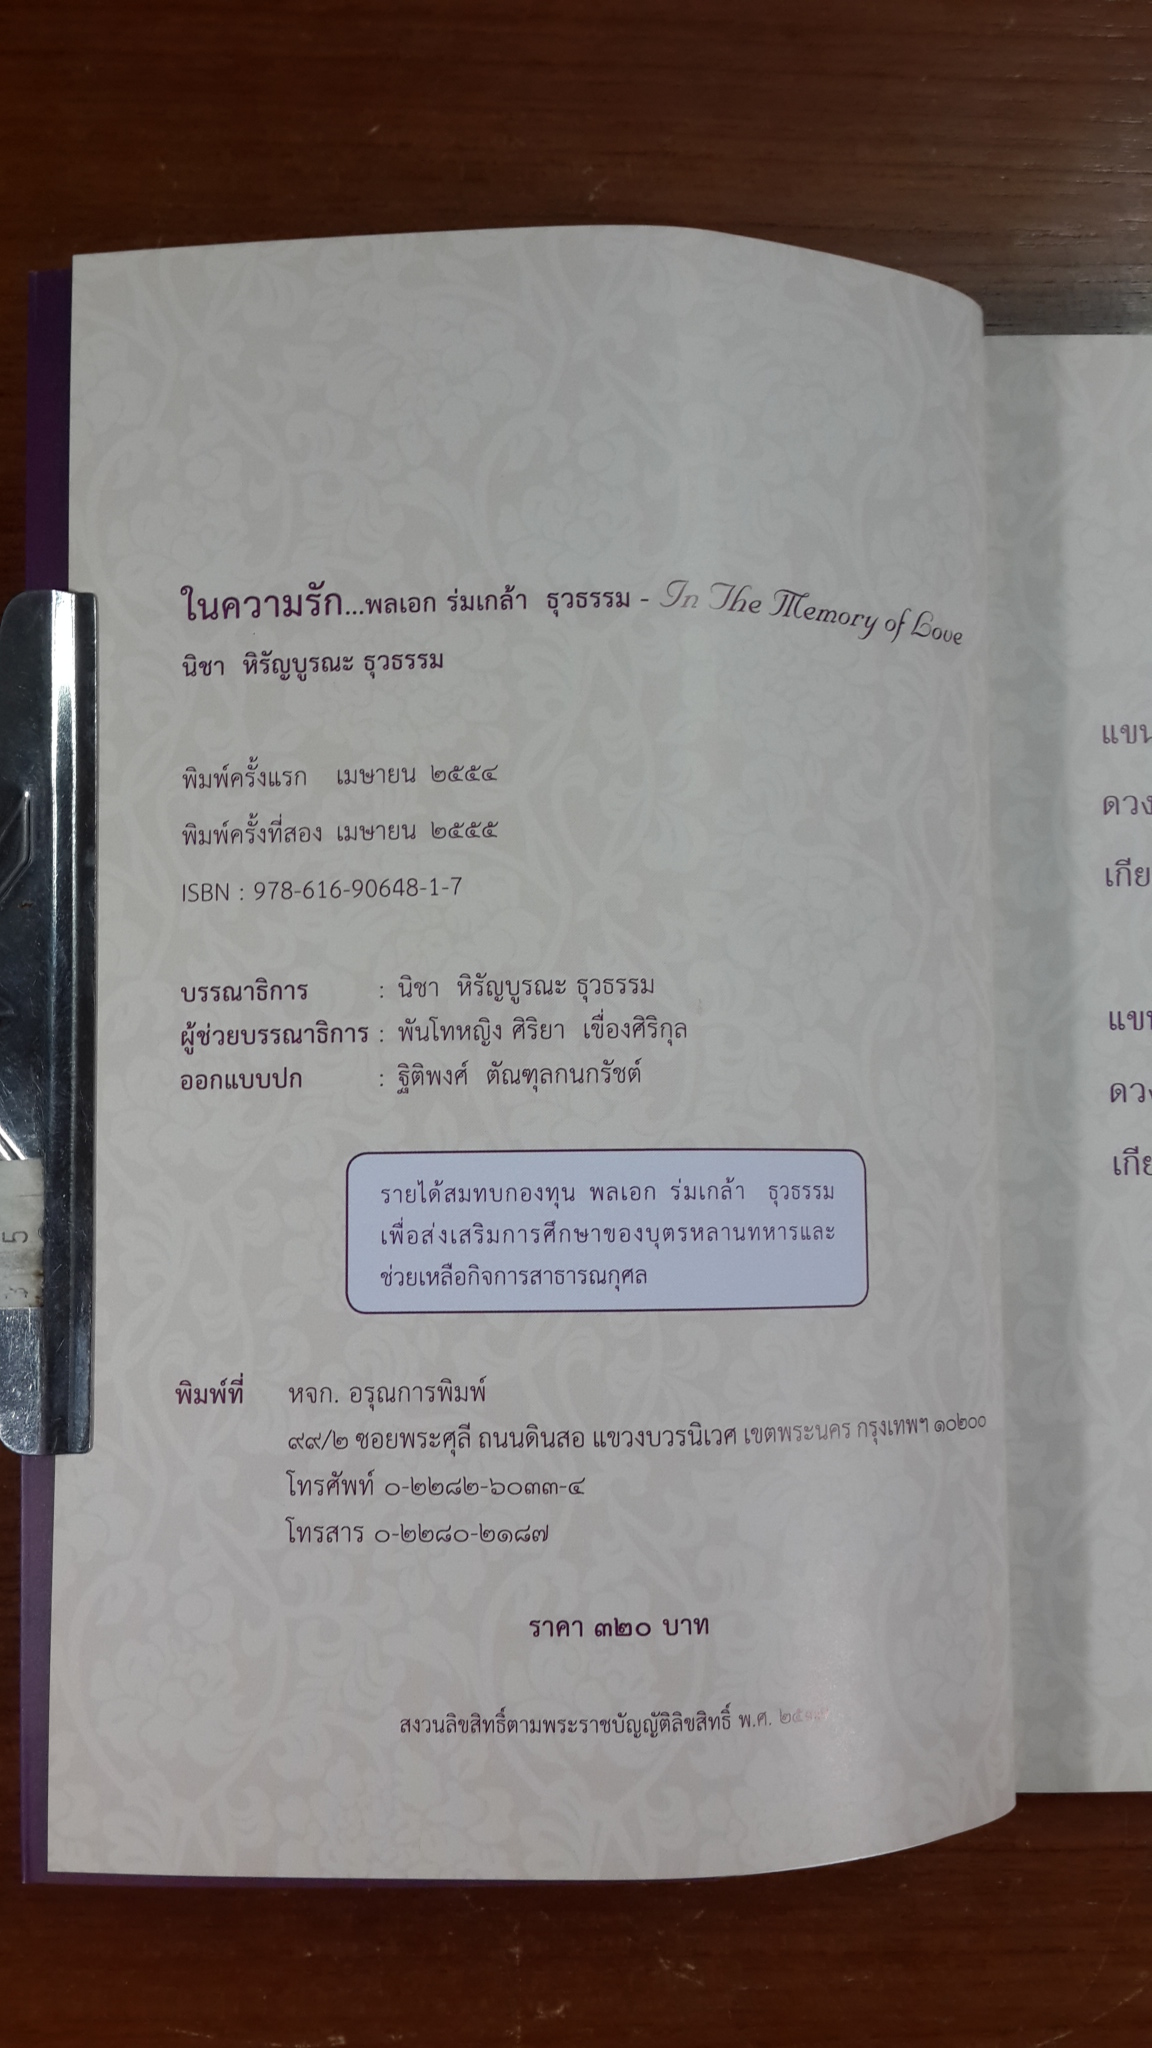 ในความรัก...พลเอก ร่มเกล้า ธุวธรรม - In The Memory of Love
นิชา หิรัญบูรณะ ธุวธรรม
พิมพ์ครั้งแรก เมษายน ๒๕๕๔
พิมพ์ครั้งที่สอง เมษายน ๒๕๕๕
ISBN : 978-616-90648-1-7
บรรณาธิการ : นิชา หิรัญบูรณะ ธุวธรรม
ผู้ช่วยบรรณาธิการ : พันโทหญิง ศิริยา เขื่องศิริกุล
ออกแบบปก : ฐิติพงศ์ ตัณฑุลกนกรัชต์
รายได้สมทบกองทุน พลเอก ร่มเกล้า ธุวธรรม
เพื่อส่งเสริมการศึกษาของบุตรหลานทหารและ
ช่วยเหลือกิจการสาธารณกุศล
พิมพ์ที่ หจก. อรุณการพิมพ์
๙๙/๒ ซอยพระศุลี ถนนดินสอ แขวงบวรนิเวศ เขตพระนคร กรุงเทพฯ ๑๐๒๐๐
โทรศัพท์ ๐-๒๒๘๒-๖๐๓๓-๔
โทรสาร ๐-๒๒๘๐-๒๑๘๗
ราคา ๓๒๐ บาท
สงวนลิขสิทธิ์ตามพระราชบัญญัติลิขสิทธิ์ พ.ศ.
แขน
ดวง
เกีย
ดวง